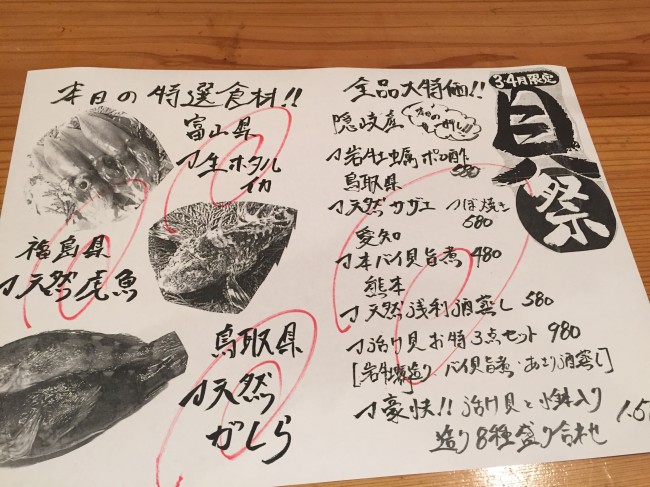 本日の特選食材!!
富山県
生ホタル
イカ
福島県
天然虎魚
鳥取県
天然
がしら
3・4月限定
貝祭
全品大特価!!
隠岐産
岩牡蠣ポン酢
580
鳥取県
天然サザエ つぼ焼き
580
愛知
本バイ貝旨煮 480
熊本
天然浅利酒蒸し 580
活け貝お特3点セット 980
[岩牡蠣造り・バイ貝旨煮・あさり酒蒸し]
豪快!! 活け貝と小鉢入り
造り8種盛り合わせ